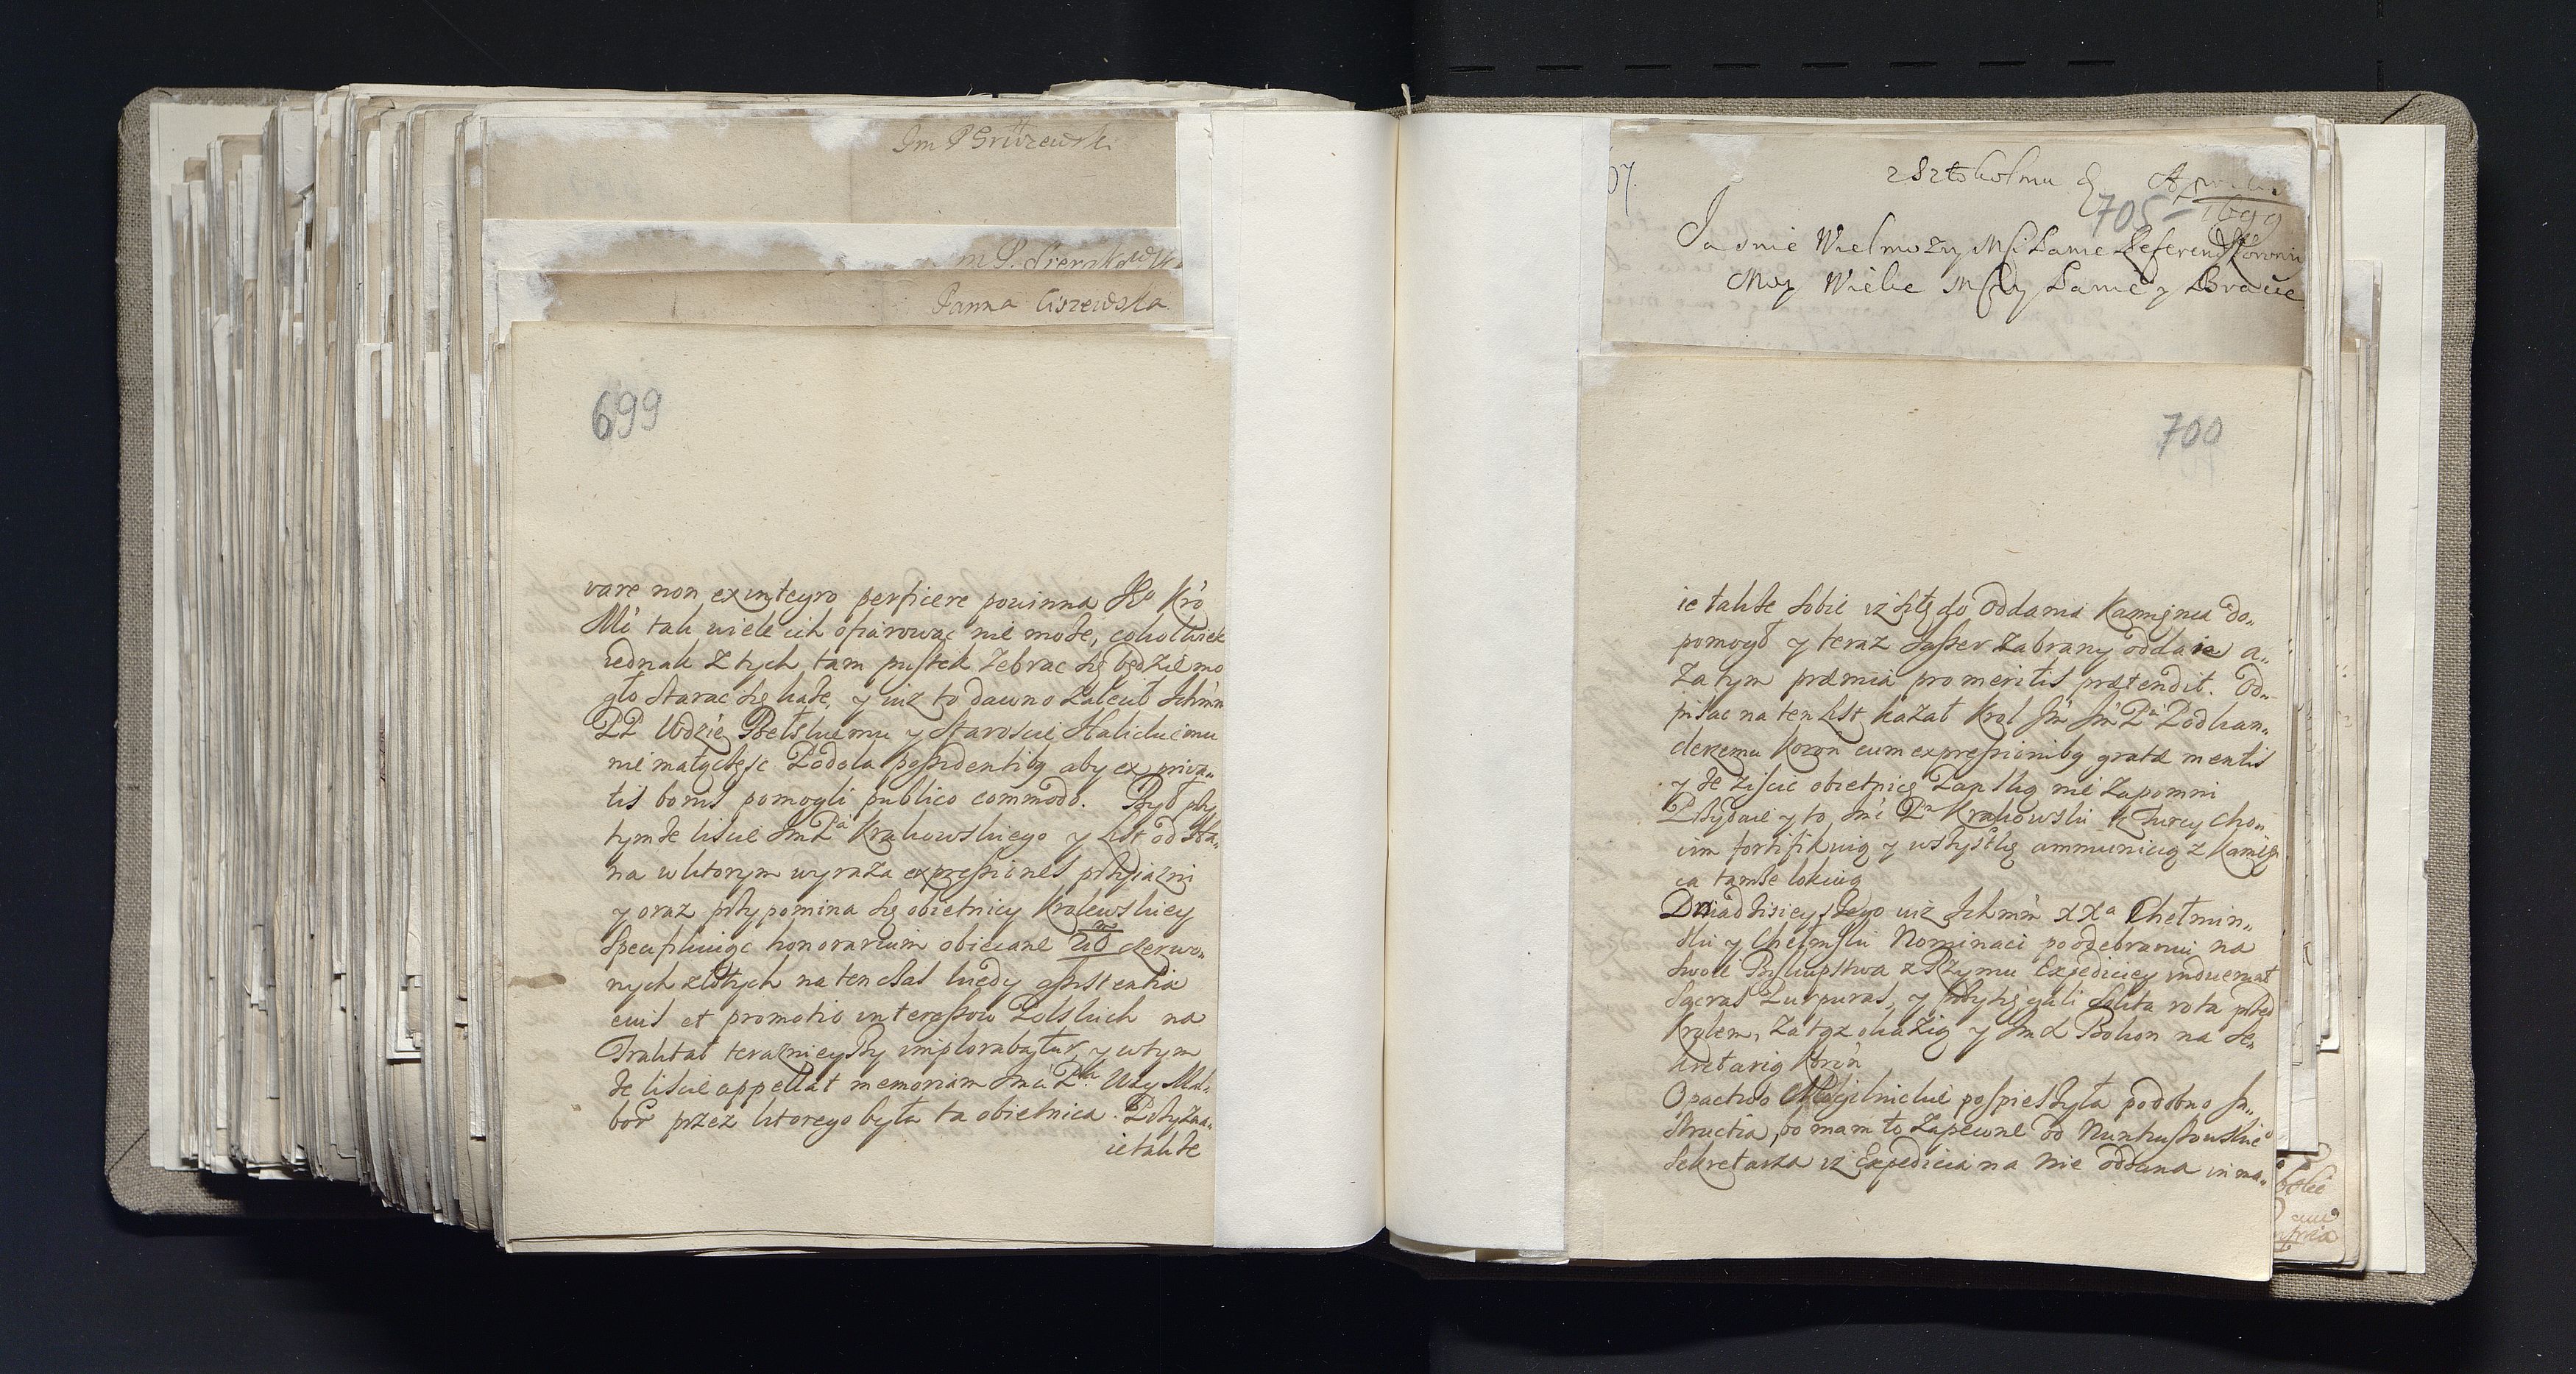 Im P Gruzewski
Panna Ciszewska
699
vare non ex integro perficere powinna JKo Kro
Mć tak wiele ich ofiarowac nie może, cokolwiek
iednak z tych tam pustek zebrac się będzie mo
gło starac się każe, y iuz to dawno zalecił Ichmm
PP Wdzie Bełskiemu y Staroscie Halickiemu
nie małą częsc Podola possidentibq aby ex priva„
tis bonis pomogli publico commodo. Był przy
tymże liscie Jm Pa Krakowskiego y list od Ha„
na w ktorym wyraza expressiones przyiazni
y oraz przypomina się obietnicy Krolewskiey
specifikuiąc honorarium obiecane czerwo„
nych złotych na ten czas kiedy assistentia
eius et promotio interessow Polskich na
Traktat teraznieyszy implorabatur, y w tym
że liscie appellat memoriam Jmci Pa
bor przez ktorego była ta obietnica. Przyzna„
ie także
07.
z Sztokolmu Aprilis
705 1699
Jasnie Wielmozny Mści Panie Referend Koronny
Moy Wielce Mscy Panie y Bracie
700
ie także sobie iz się do oddania Kamięnca do„
pomogł y teraz Jasser zabrany oddaie a„
za tym præmia pro meritis prætendit. Od„
pisac na ten list kazał Krol Jm Jm Pu Podkan„
clerzemu Koron cum expressionibq gratæ mentis
y że ziscic obietnicę zapłtą nie zapomni
Przydaie y to Jmć Pn Krakowski iz Turcy Cho„
cim fortifikuią y wszystkę ammunicią z Kamięn
ca tamże lokuią
Dnia dzisieyszego iuz Ichmm XXa Chełmin„
ski y Chełmski Nominaci po odebraniu na
swoie Biskupstwa z Rzymu Expediciey induerunt
sacras Purpuras, y przysięgali solita rota przed
Krolem, za tąz okazią y Jm X Bokon na Se„
kretarią Koron
Opactwo Mogilnickie pospieszyła podobno In„
structia, bo mam to zapewne od Nuntiuszowskieo
Sekretarza iz Expedicia na nie oddana in ma„